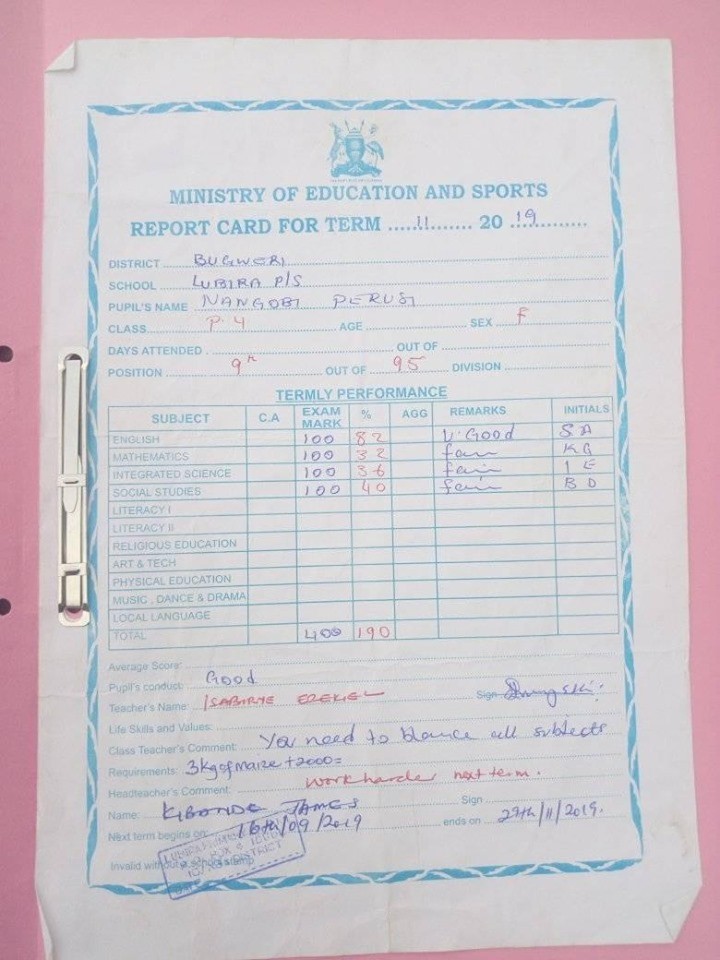 MINISTRY OF EDUCATION AND SPORTS
REPORT CARD FOR TERM .....11....... 20 .19............
DISTRICT BUGWERI
SCHOOL LUBIRA P/S
PUPIL'S NAME NANGOBI PERUSI
CLASS P.4 AGE SEX F
DAYS ATTENDED OUT OF
POSITION 9th OUT OF 95 DIVISION
TERMLY PERFORMANCE
SUBJECT C.A EXAM MARK % AGG REMARKS INITIALS
ENGLISH 100 82 V.Good S A
MATHEMATICS 100 32 fair K G
INTEGRATED SCIENCE 100 36 fair I E
SOCIAL STUDIES 100 40 fair B D
LITERACY I
LITERACY II
RELIGIOUS EDUCATION
ART & TECH
PHYSICAL EDUCATION
MUSIC , DANCE & DRAMA
LOCAL LANGUAGE
TOTAL 400 190
Average Score:
Pupil's conduct: Good
Teacher's Name: ISABIRYE EZEKIEL Sign
Life Skills and Values:
Class Teacher's Comment: You need to blance all subjects
Requirements: 3kg of maize + 2000=
Headteacher's Comment: work harder next term.
Name: KIBONDE JAMES Sign
Next term begins on: 16th/09/2019 ends on 29th/11/2019.
Invalid without school stamp